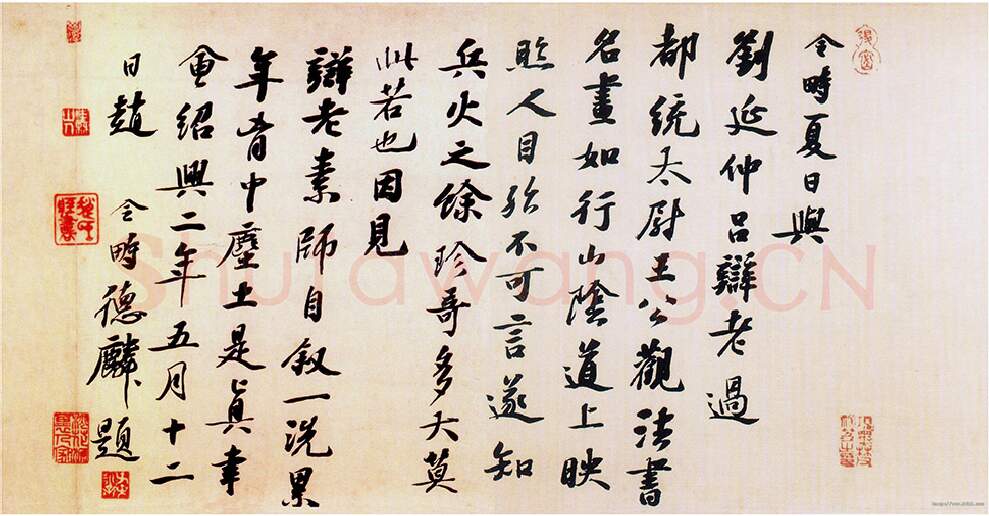 令畤夏日與
劉延仲呂辯老過
都統太尉王公觀法書
名畫如行山陰道上映
照人目殆不可言遂知
兵火之餘珍哥多大莫
此若也因見
辯老素師自叙一洗累
年胷中塵土是真幸
會紹興二年五月十二
日趙 令畤德麟題
Shufawang.CN